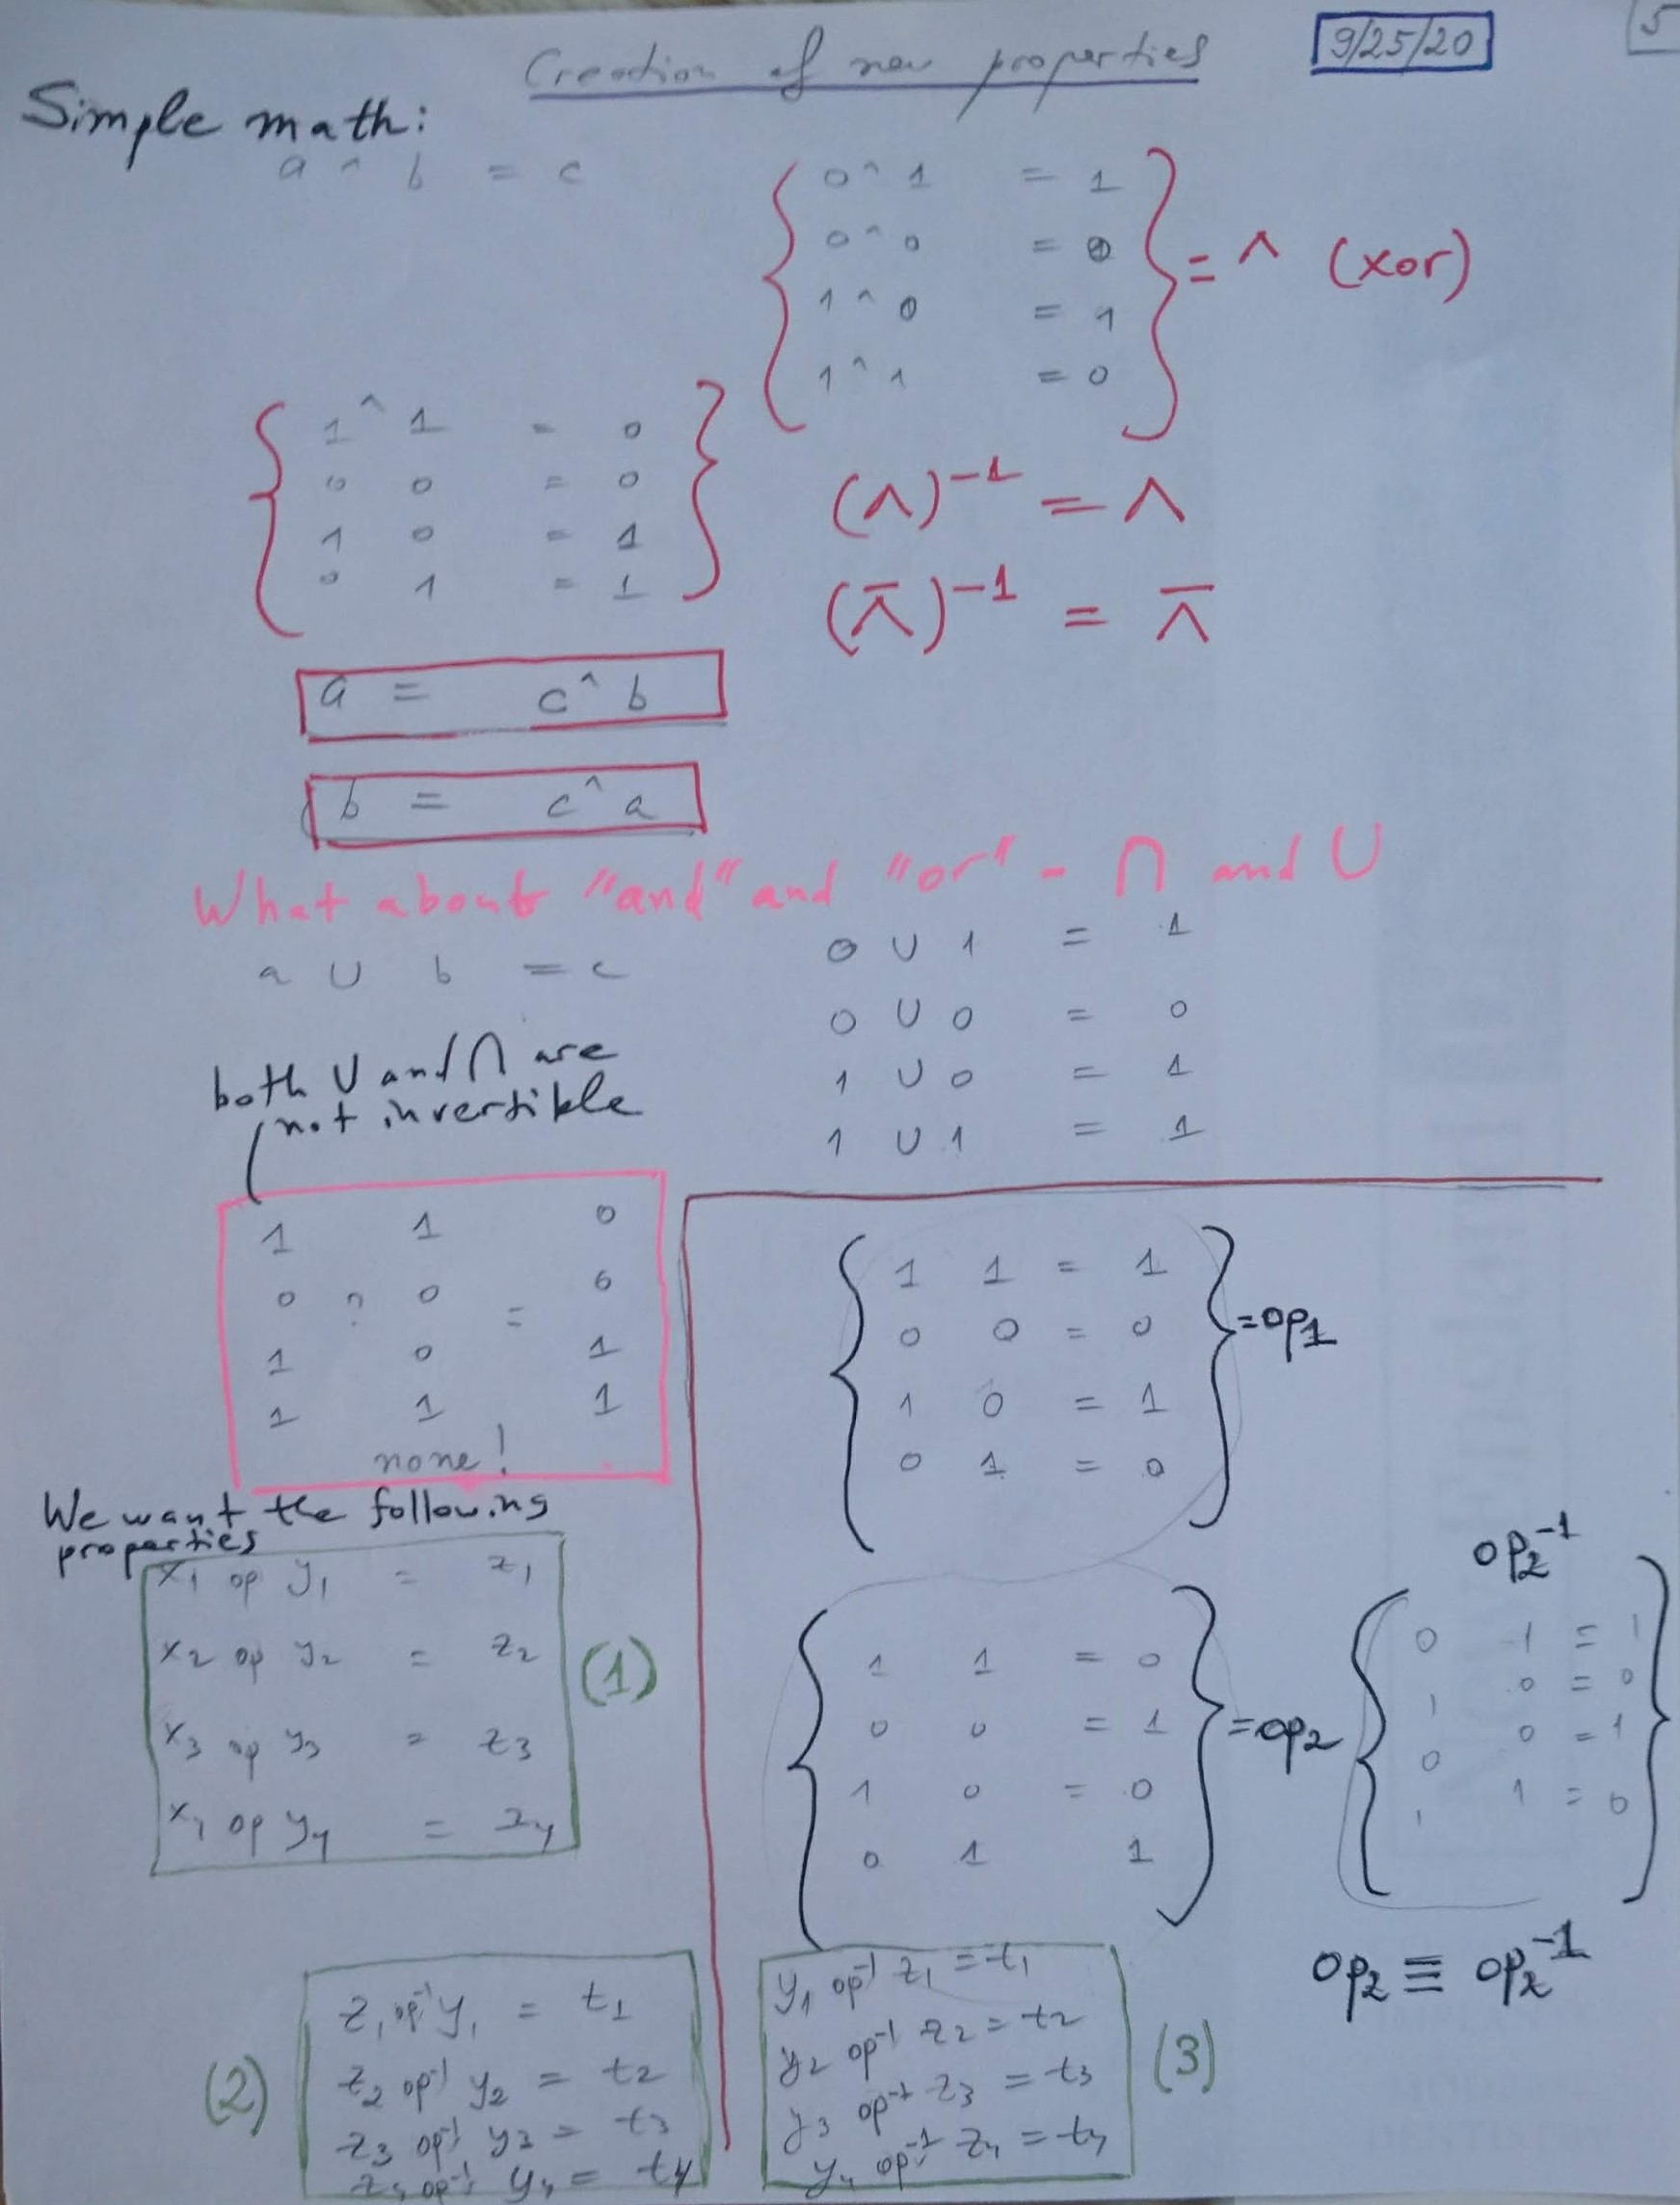 Creation of new properties
9/25/20
5
Simple math:
a ^ b = c
0 ^ 1 = 1
0 ^ 0 = 0
1 ^ 0 = 1
1 ^ 1 = 0
= ^ (xor)
1 ^ 1 = 0
0 0 = 0
1 0 = 1
0 1 = 1
(^)⁻¹ = ^
(⊼)⁻¹ = ⊼
a = c ^ b
b = c ^ a
What about "and" and "or" - ∩ and ∪
a ∪ b = c
0 ∪ 1 = 1
0 ∪ 0 = 0
1 ∪ 0 = 1
1 ∪ 1 = 1
both ∪ and ∩ are
not invertible
1 1 0
0 ? 0 = 0
1 0 1
1 1 1
none!
1 1 = 1
0 0 = 0
1 0 = 1
0 1 = 0
= op1
We want the following
properties
x1 op y1 = z1
x2 op y2 = z2
x3 op y3 = z3
op y4 = z4
(1)
1 1 = 0
0 0 = 1
1 0 = 0
0 1 1
= op2
op2⁻¹
0 1 = 1
1 0 = 0
0 0 = 1
1 1 = 0
op2 ≡ op2⁻¹
(2)
z1 op⁻¹ y1 = t1
z2 op⁻¹ y2 = t2
z3 op⁻¹ y3 = t3
z4 op⁻¹ y4 = t4
y1 op⁻¹ z1 = t1
y2 op⁻¹ z2 = t2
y3 op⁻¹ z3 = t3
y4 op⁻¹ z4 = t4
(3)